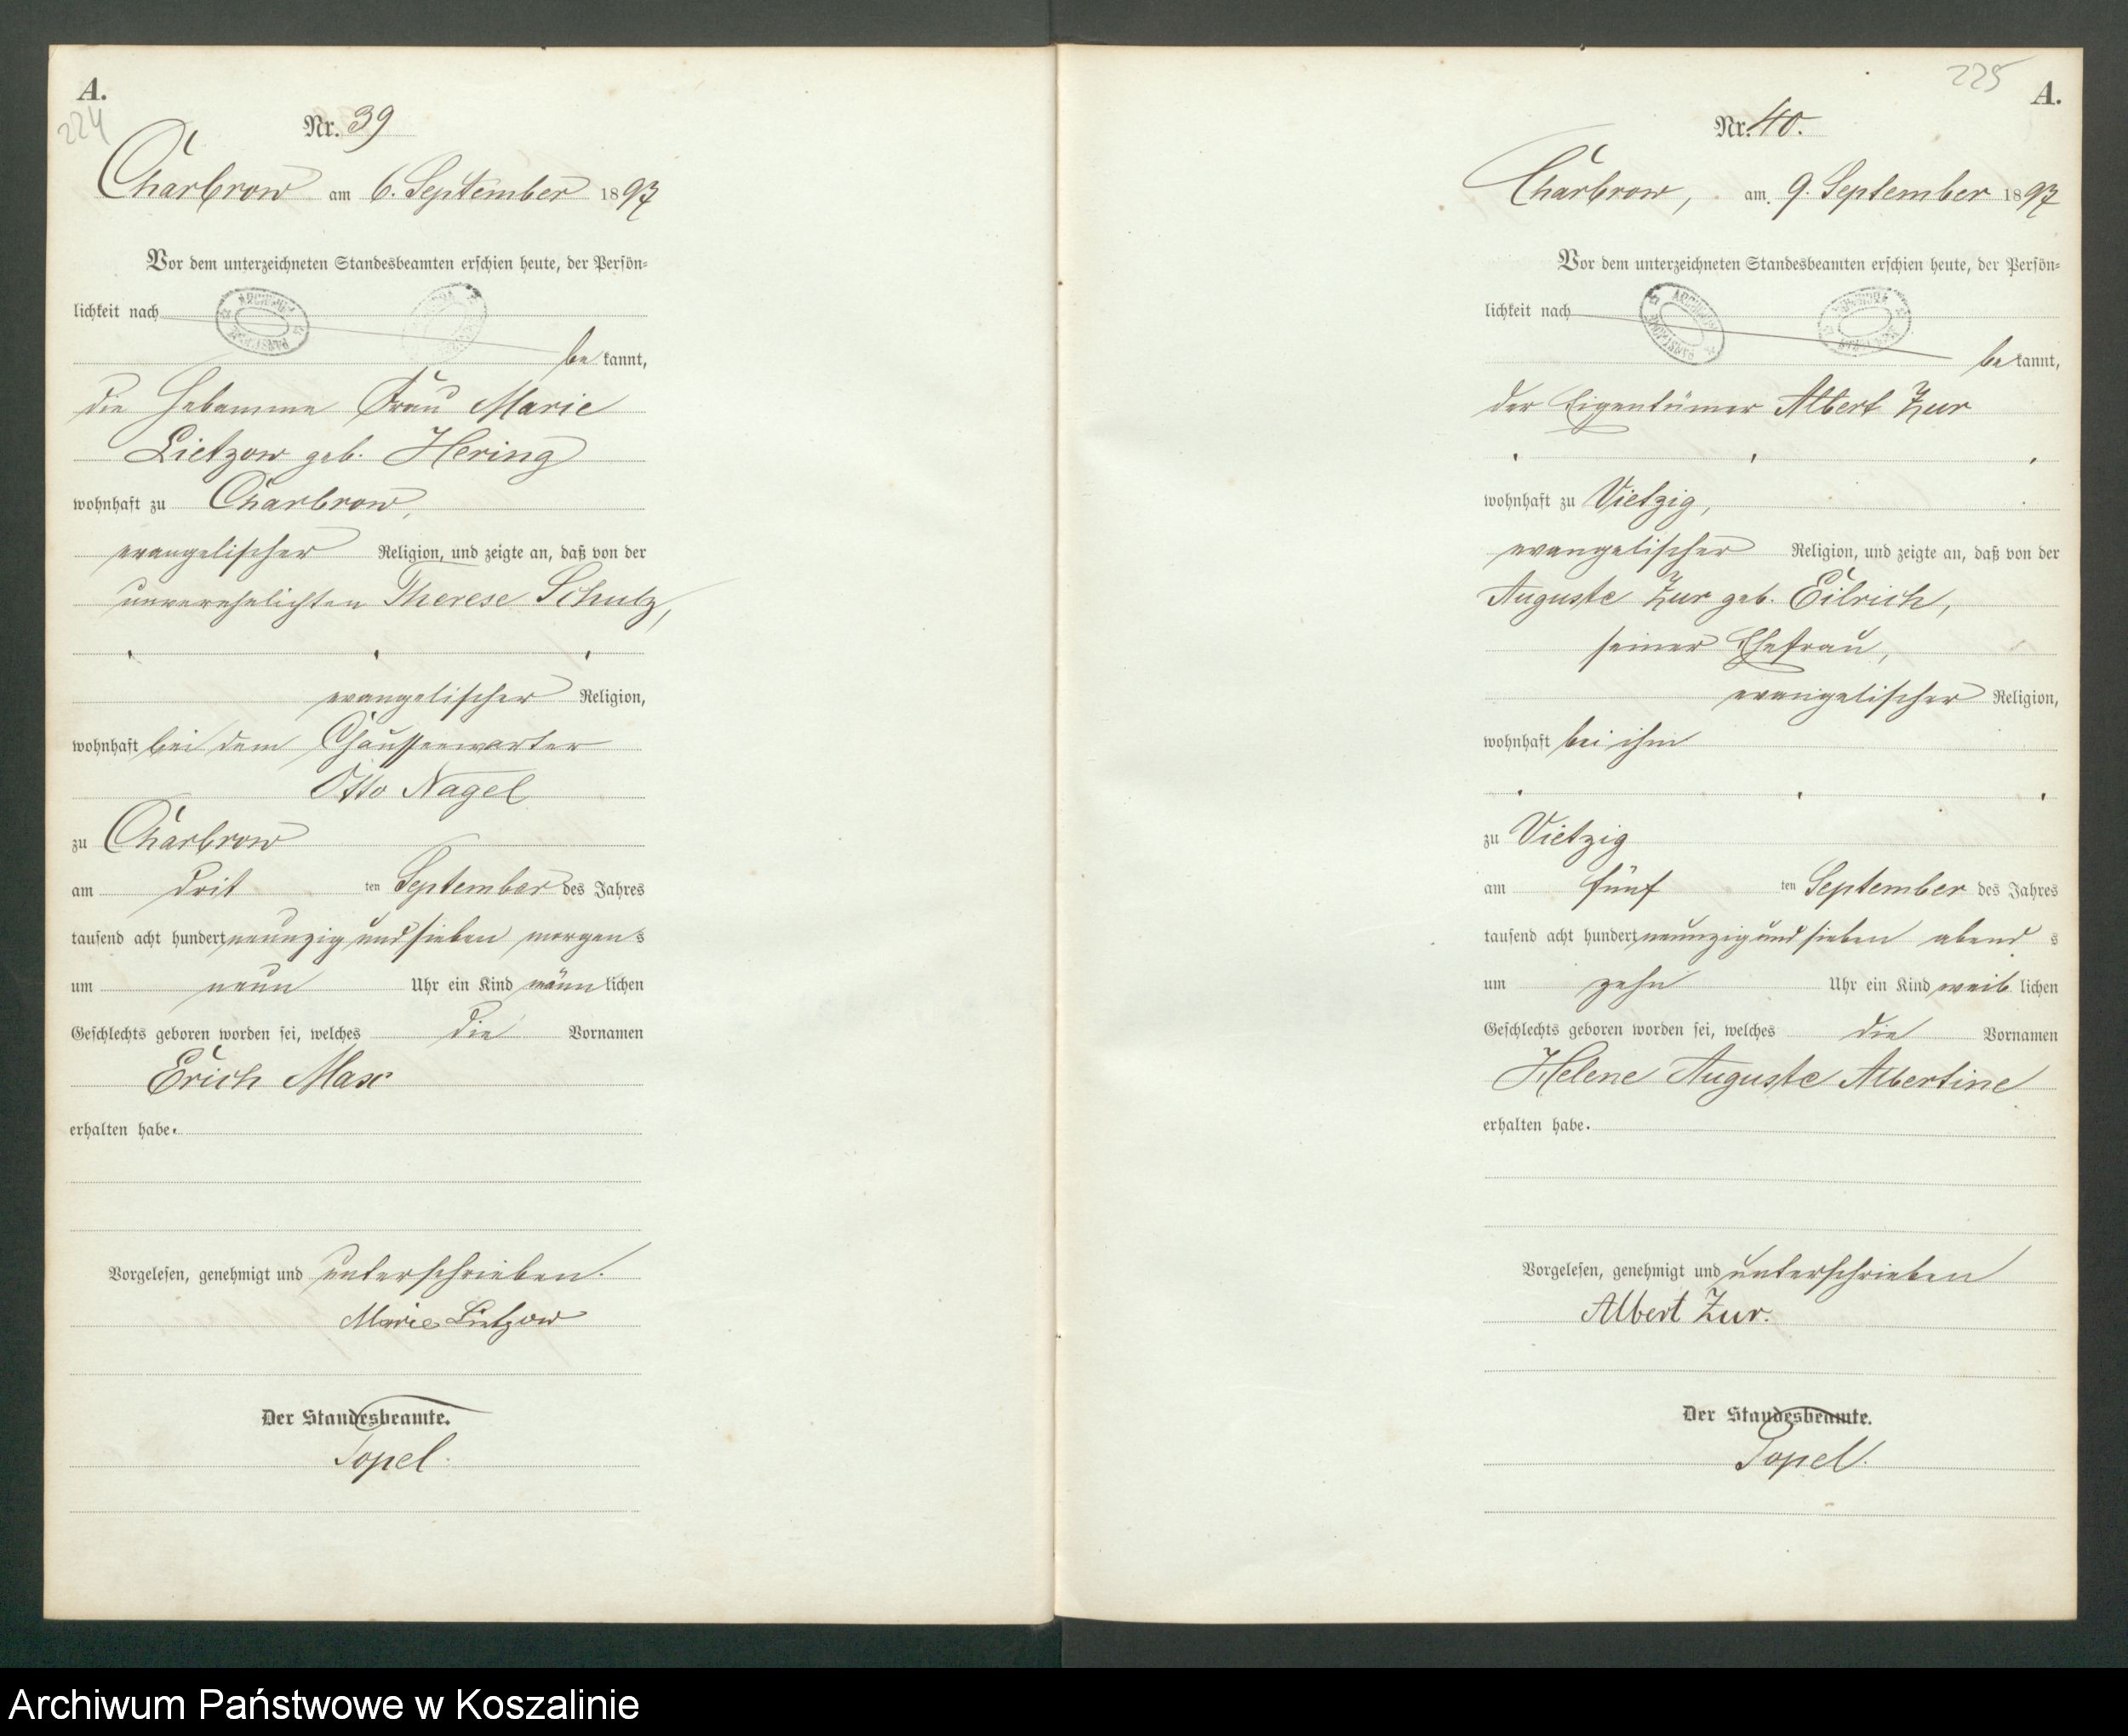 A.
224
Nr. 39
Charbrow am 6. September 1897
Vor dem unterzeichneten Standesbeamten erschien heute, der Persön-
lichkeit nach
be kannt,
die Hebamme Frau Marie
Lietzow geb. Hering
wohnhaft zu Charbrow,
evangelischer Religion, und zeigte an, daß von der
unverehelichten Therese Schulz,
evangelischer Religion,
wohnhaft bei dem Chausseewarter
Otto Nagel
zu Charbrow
am drit ten September des Jahres
tausend acht hundert neunzig und sieben morgens
um neun Uhr ein Kind männlichen
Geschlechts geboren worden sei, welches die Vornamen
Erich Max
erhalten habe.
Vorgelesen, genehmigt und unterschrieben.
Marie Lietzow
Der Standesbeamte.
Topel.
225
A.
Nr. 40.
Charbrow, am 9. September 1897
Vor dem unterzeichneten Standesbeamten erschien heute, der Persön-
lichkeit nach
be kannt,
der Eigentümer Albert Zur
wohnhaft zu Vietzig,
evangelischer Religion, und zeigte an, daß von der
Auguste Zur geb. Eilrich,
seiner Ehefrau,
evangelischer Religion,
wohnhaft bei ihm
zu Vietzig
am fünf ten September des Jahres
tausend acht hundert neunzig und sieben abend s
um zehn Uhr ein Kind weib lichen
Geschlechts geboren worden sei, welches die Vornamen
Helene Auguste Albertine
erhalten habe.
Vorgelesen, genehmigt und unterschrieben
Albert Zur.
Der Standesbeamte.
Topel.
Archiwum Państwowe w Koszalinie